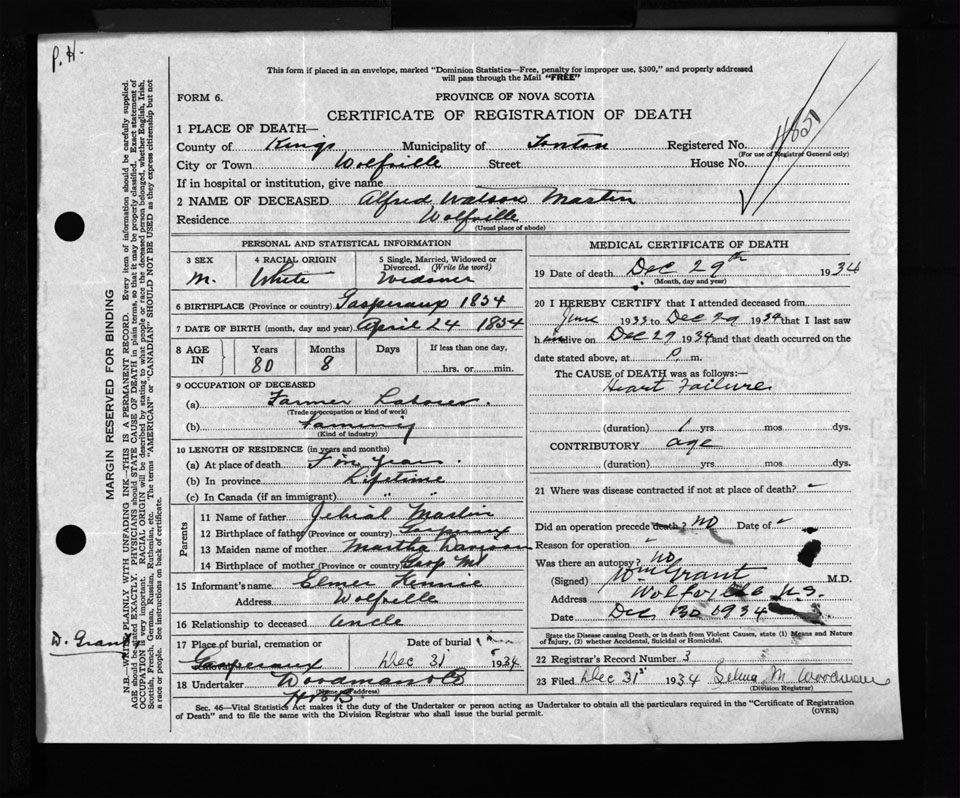 P. H.
This form if placed in an envelope, marked "Dominion Statistics—Free, penalty for improper use, $300," and properly addressed
will pass through the Mail "FREE"
FORM 6.
PROVINCE OF NOVA SCOTIA
CERTIFICATE OF REGISTRATION OF DEATH
1 PLACE OF DEATH—
County of Kings Municipality of Registered No. 4851
(For use of Registrar General only)
City or Town Wolfville Street House No.
If in hospital or institution, give name
2 NAME OF DECEASED Alfred Watson Martin
Residence Wolfville
(Usual place of abode)
PERSONAL AND STATISTICAL INFORMATION
3 SEX 4 RACIAL ORIGIN 5 Single, Married, Widowed or
Divorced. (Write the word)
M. White Widower
6 BIRTHPLACE (Province or country) Gaspereaux 1854
7 DATE OF BIRTH (month, day and year) April 24 1854
8 AGE IN Years Months Days If less than one day,
80 8 hrs. or min.
9 OCCUPATION OF DECEASED
(a) Farmer Laborer.
(Trade or occupation or kind of work)
(b) Farming
(Kind of industry)
10 LENGTH OF RESIDENCE (in years and months)
(a) At place of death years.
(b) In province Lifetime
(c) In Canada (if an immigrant) " "
Parents
11 Name of father Jehial Martin
12 Birthplace of father (Province or country) Gaspereaux
13 Maiden name of mother Martha
14 Birthplace of mother (Province or country) Gasp Mt
15 Informant's name Elmer Kennie
Address Wolfville
16 Relationship to deceased Uncle
17 Place of burial, cremation or removal Date of burial
Gaspereaux Dec 31 1934
18 Undertaker Woodman
(Name or address)
MEDICAL CERTIFICATE OF DEATH
19 Date of death Dec 29th 1934
(Month, day and year)
20 I HEREBY CERTIFY that I attended deceased from
June 1933 to Dec 29 1934 that I last saw
him alive on Dec 29 1934 and that death occurred on the
date stated above, at P. m.
The CAUSE of DEATH was as follows:—
Heart Failure
(duration) 1 yrs mos. dys.
CONTRIBUTORY age
(duration) yrs. mos. dys.
21 Where was disease contracted if not at place of death?
Did an operation precede death? No Date of
Reason for operation
Was there an autopsy? No
(Signed) Wm Grant M.D.
Address Wolfville N.S.
Date Dec 30 1934
State the Disease causing Death, or in death from Violent Causes, state (1) Means and Nature
of Injury, (2) whether Accidental, Suicidal or Homicidal.
22 Registrar's Record Number 3
23 Filed Dec 31st 1934 Selina M Woodman
(Division Registrar)
Sec. 46—Vital Statistics Act makes it the duty of the Undertaker or person acting as Undertaker to obtain all the particulars required in the "Certificate of Registration
of Death" and to file the same with the Division Registrar who shall issue the burial permit. (OVER)
MARGIN RESERVED FOR BINDING
N.B.—WRITE PLAINLY WITH UNFADING INK—THIS IS A PERMANENT RECORD. Every item of information should be carefully supplied.
AGE should be stated EXACTLY. PHYSICIANS should STATE CAUSE OF DEATH in plain terms, so that it may be properly classified. Exact statement of
OCCUPATION is very important. RACIAL ORIGIN will be described by stating to what people or race the deceased person belonged, whether English, Irish,
Scottish, French, German, Russian, Ruthenian, etc. The terms "AMERICAN" or "CANADIAN" SHOULD NOT BE USED as they express citizenship but not
a race or people. See instructions on back of certificate.
D. Grant